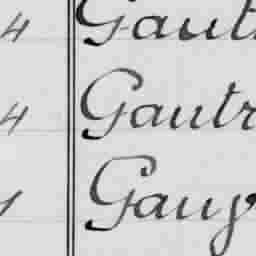 4 Gaut
4 Gautr
1 Gauy